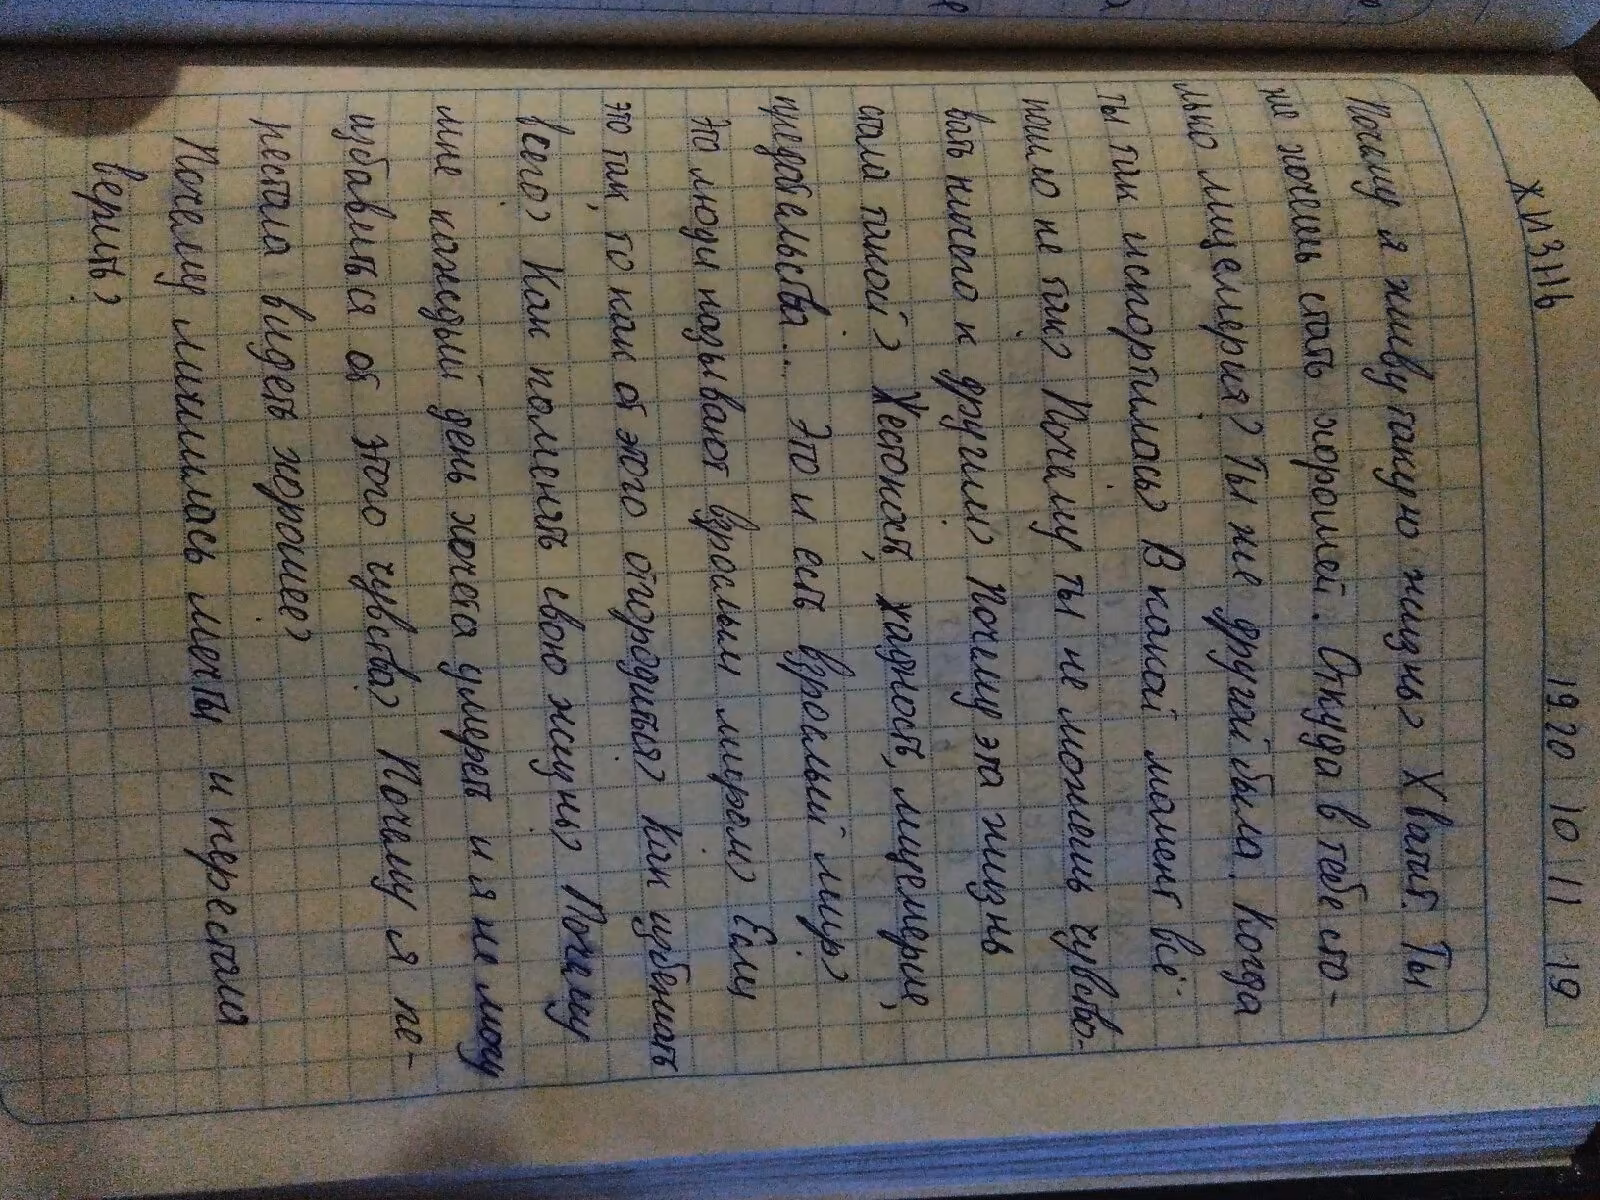 ЖИЗНЬ
19 20 10 11 19
Почему я живу такую жизнь? Хватит. Ты
не хочешь стать хорошей. Откуда в тебе сто-
лько лицемерия? Ты же другой была. Когда
ты так испортилась? В какой момент всё
пошло не так? Почему ты не можешь чувство-
вать ничего к другим? Почему эта жизнь
стала такой? Жестокость, жадность, лицемерие,
предательства... Это и есть взрослый мир?
Это люди называют взрослым миром? Если
это так, то как от этого отгородиться? Как избежать
всего? Как поменять свою жизнь? Почему
мне каждый день хочется умереть и я не могу
избавиться от этого чувства? Почему я пе-
рестала видеть хорошее?
Почему лишилась мечты и перестала
верить?